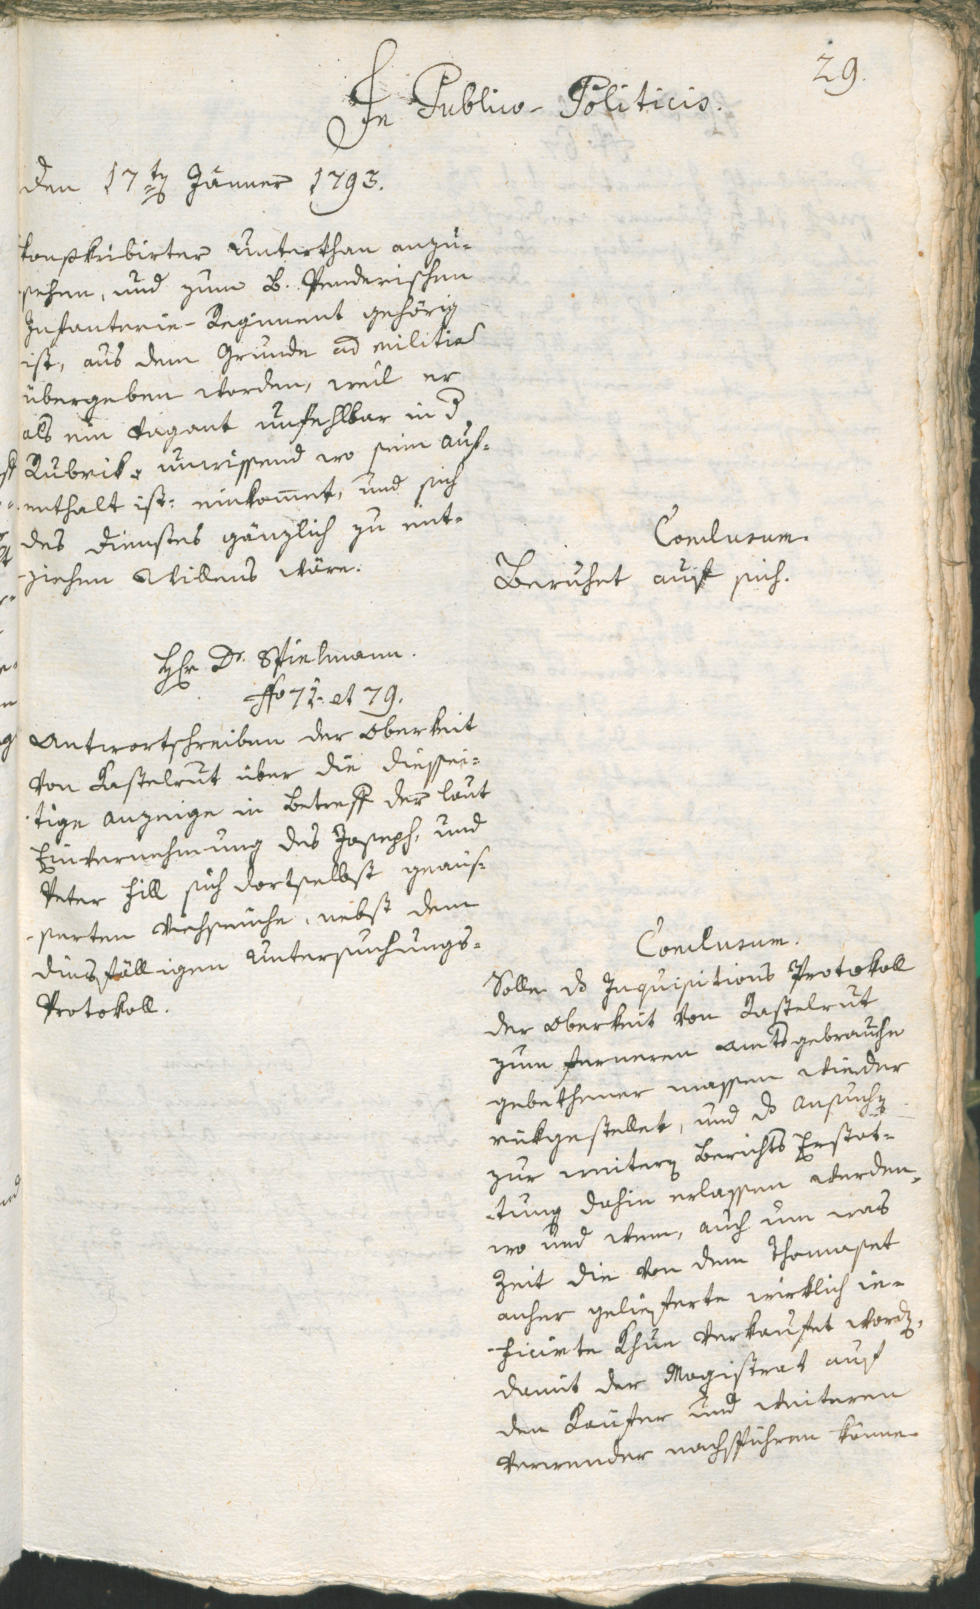 29.
In Publico-Politicis.
den 17ten Jänner 1793.
konskribirter Unterthan anzu-
sehen, und zum B. Penderischen
Infanterie-Regiment gehörig
ist, aus dem Grunde ad militiam
übergeben worden, weil er
als ein Vagant unfehlbar in d
Rubrik unwissend wo sein Auf-
enthalt ist: einkom̅et, und sich
des Dienstes gänzlich zu ent-
ziehen Willens wäre.
Conclusum.
Beruhet auf sich.
Hr. Dr. Spielmann.
et 79.
Antwortschreiben der Oberkeit
von Kastelrut über die diessei-
tige Anzeige in Betreff der laut
Einvernehmung des Joseph, und
Peter Fill sich dortselbst geäus-
serten Viehseuche, nebst dem
diesfälligen Untersuchungs-
Protokoll.
Conclusum.
Solle ds Inquisitions Protokoll
der Oberkeit von Kastelrut
zum ferneren Amtsgebrauche
gebethener massen wieder
rükgestellet, und ds Ansuchen
zur weitern Berichts Erstat-
tung dahin erlassen werden,
wo und wem, auch um was
Zeit die von dem Thomaset
anher gelieferte wirklich in-
ficirte Khue verkaufet worden,
damit der Magistrat auf
den Käufer und weiteren
Verwender nachspühren könne.